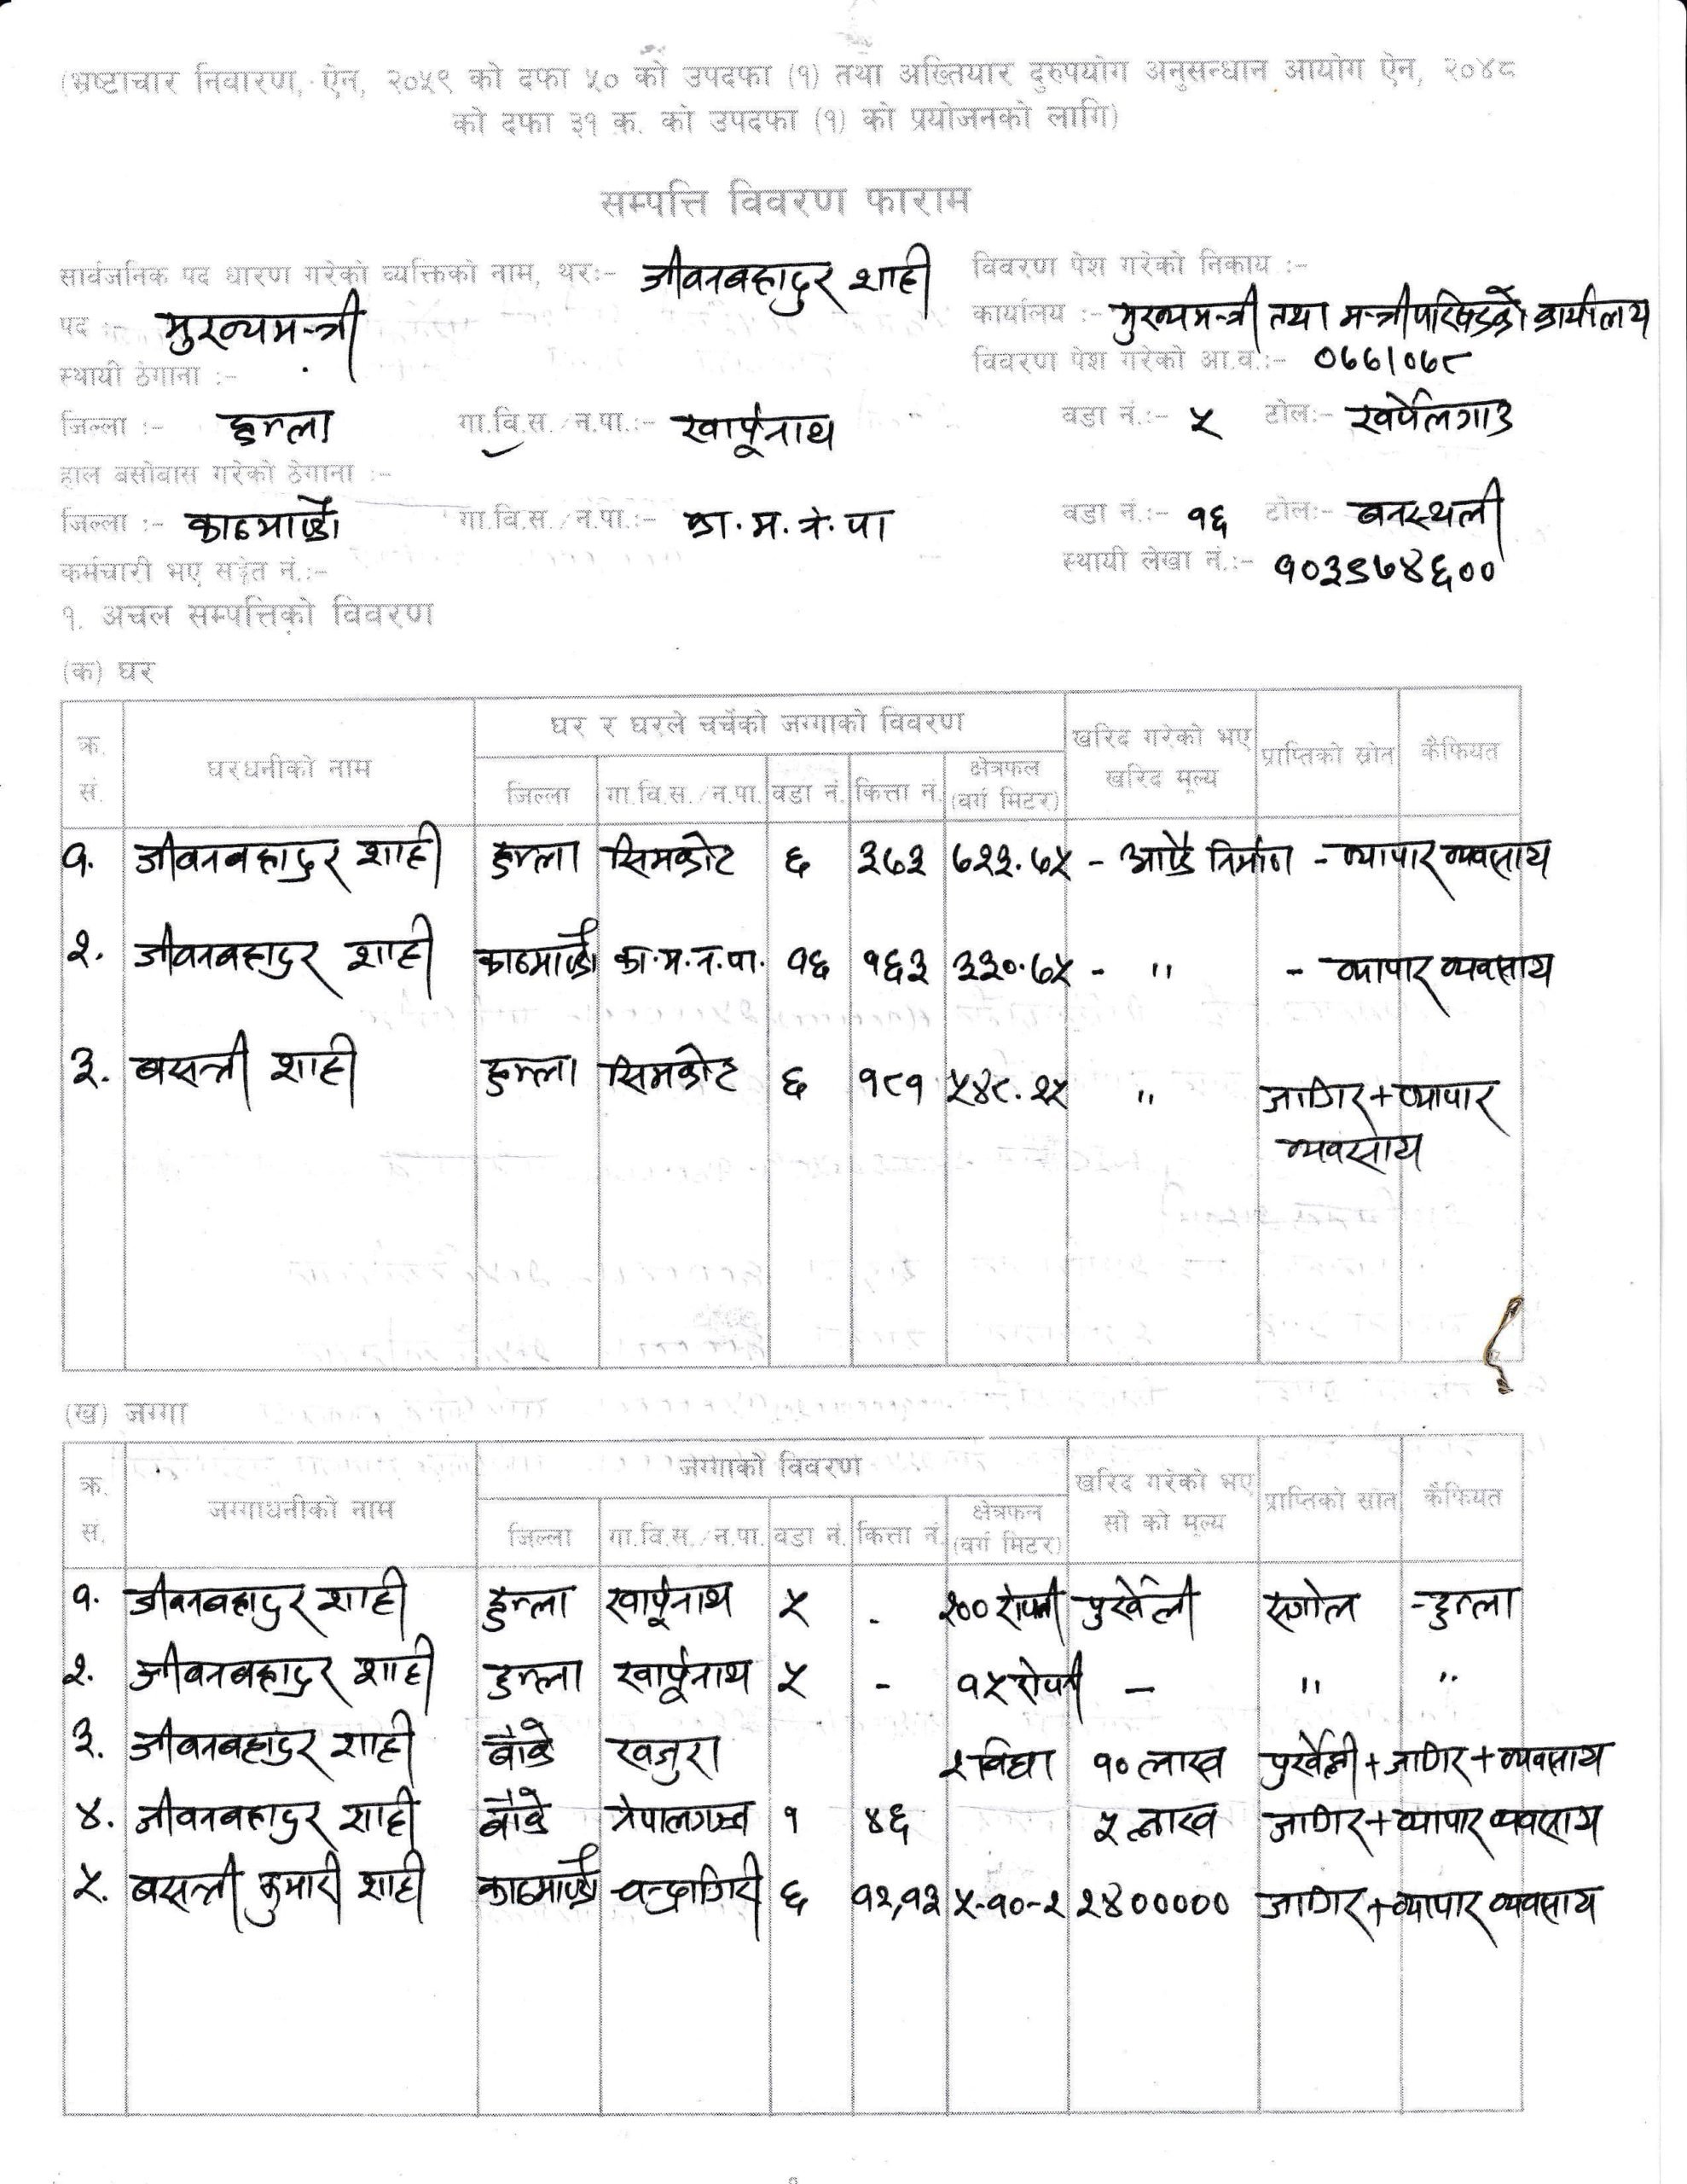 (भ्रष्टाचार निवारण, ऐन, २०५९ को दफा ५० को उपदफा (१) तथा अख्तियार दुरुपयोग अनुसन्धान आयोग ऐन, २०४८
को दफा ३१ क. को उपदफा (१) को प्रयोजनको लागि)
सम्पत्ति विवरण फाराम
सार्वजनिक पद धारण गरेको व्यक्तिको नाम, थरः- जीवनबहादुर शाही विवरण पेश गरेको निकाय :-
पद :- मुख्यमन्त्री कार्यालय :- मुख्यमन्त्री तथा मन्त्रीपरिषदको कार्यालय
स्थायी ठेगाना :- विवरण पेश गरेको आ.व.:- ०७७।०७८
जिल्ला :- हुम्ला गा.वि.स./न.पा.:- खार्पुनाथ वडा नं.:- ५ टोलः- खर्पेलगाउ
हाल बसोबास गरेको ठेगाना :-
जिल्ला :- काठमाण्डौ गा.वि.स./न.पा.:- का.म.न.पा वडा नं.:- १६ टोलः- बनस्थली
कर्मचारी भए सङ्केत नं.:- स्थायी लेखा नं.:- १०३९७४६००
१. अचल सम्पत्तिको विवरण
(क) घर
क्र. सं. घरधनीको नाम घर र घरले चर्चेको जग्गाको विवरण खरिद गरेको भए खरिद मूल्य प्राप्तिको स्रोत कैफियत
जिल्ला गा.वि.स./न.पा. वडा नं. कित्ता नं. क्षेत्रफल (वर्ग मिटर)
१. जीवनबहादुर शाही हुम्ला सिमकोट ६ ३७३ ७२२.७५ - आफै निर्माण - व्यापार व्यवसाय
२. जीवनबहादुर शाही काठमाण्डौ का.म.न.पा. १६ १६३ ३३०.७५ - " - व्यापार व्यवसाय
३. बसन्ती शाही हुम्ला सिमकोट ६ १८१ ५४८.२५ " जागिर+व्यापार
व्यवसाय
(ख) जग्गा
क्र. सं. जग्गाधनीको नाम जग्गाको विवरण खरिद गरेको भए सो को मूल्य प्राप्तिको स्रोत कैफियत
जिल्ला गा.वि.स./न.पा. वडा नं. कित्ता नं. क्षेत्रफल (वर्ग मिटर)
१. जीवनबहादुर शाही हुम्ला खार्पुनाथ ५ - २०० रोपनी पुर्खेली सगोल - हुम्ला
२. जीवनबहादुर शाही हुम्ला खार्पुनाथ ५ - १५ रोपनी - " "
३. जीवनबहादुर शाही बाँके खजुरा २ विघा १० लाख पुर्खेली + जागिर + व्यवसाय
४. जीवनबहादुर शाही बाँके नेपालगञ्ज १ ४६ ५ लाख जागिर+व्यापार व्यवसाय
५. बसन्ती कुमारी शाही काठमाण्डौ चन्द्रागिरी ६ १२,१३ ५-१०-२ २४००००० जागिर+व्यापार व्यवसाय